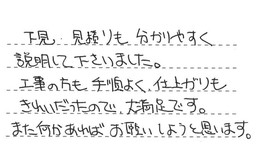 下見・見積りも 分かりやすく
説明して下さいました。
工事の方も、手順よく、仕上がりも
きれいだったので、大満足です。
また何かあれば お願いしようと思います。